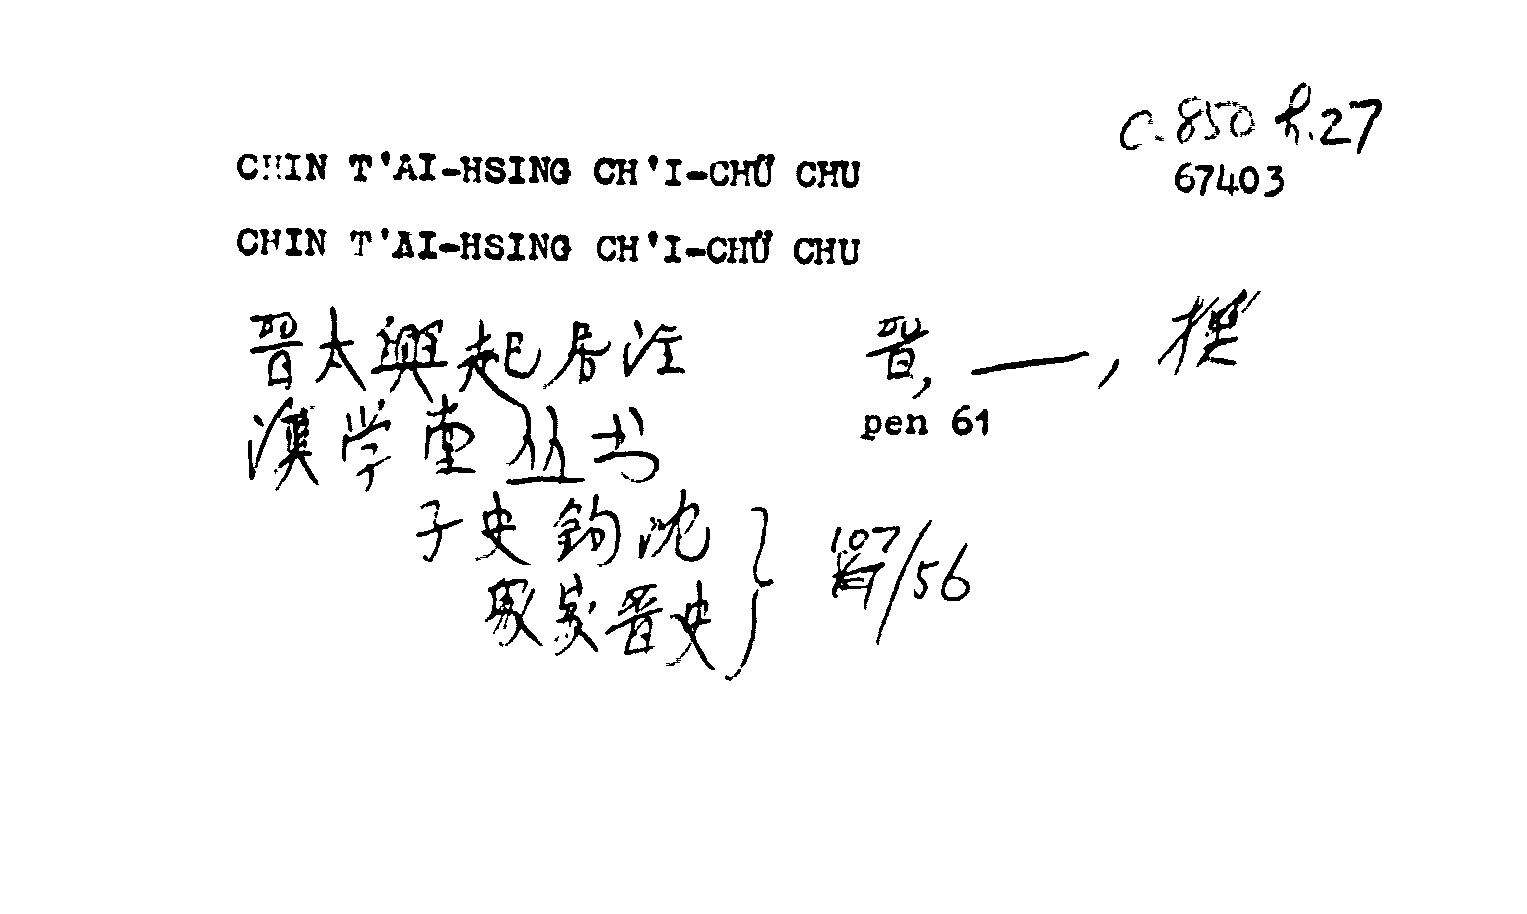 C.850 h.27
67403
CHIN T'AI-HSING CH'I-CHÜ CHU
CHIN T'AI-HSING CH'I-CHÜ CHU
晋太興起居注 晋, —, 撰
pen 61
漢学堂丛书
子史鈎沈
衆家晋史
107/56